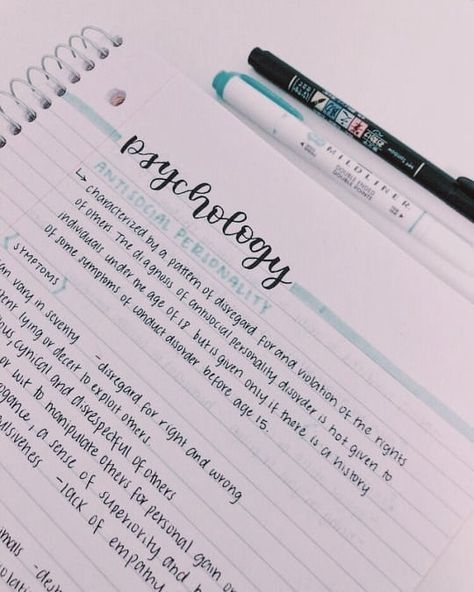 psychology
ANTISOCIAL PERSONALITY
↳ characterized by a pattern of disregard for and violation of the rights
of others. The diagnosis of antisocial personality disorder is not given to
individuals under the age of 18 but is given only if there is a history
of some symptoms of conduct disorder before age 15.
SYMPTOMS
can vary in severity -disregard for right and wrong
lying or deceit to exploit others.
cynical and disrespectful of others
or wit to manipulate others for personal gain or
a sense of superiority and
-lack of empathy
MILDLINER
DOUBLE ENDED
DOUBLE POINTS